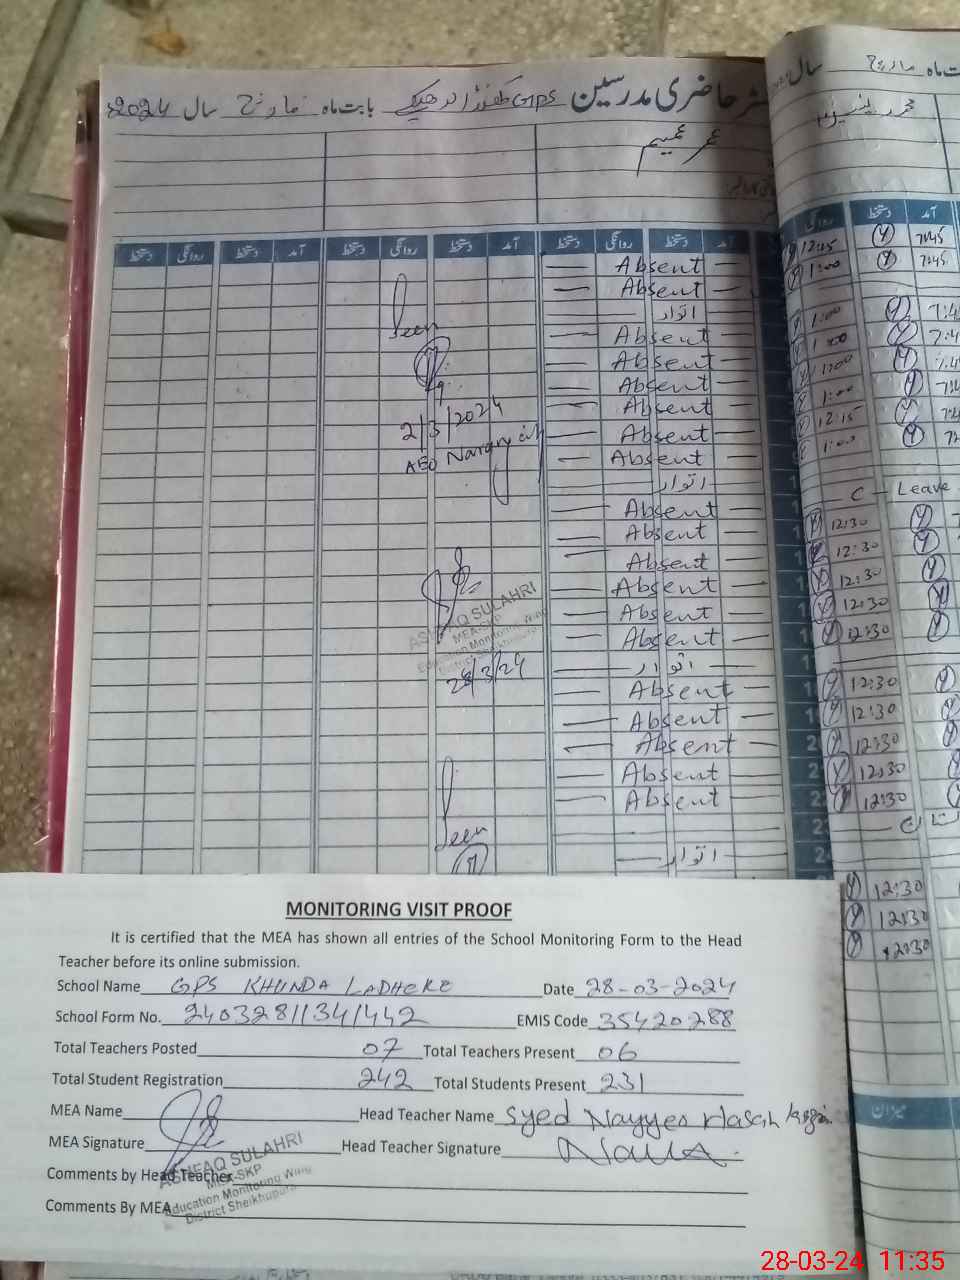 رجسٹر حاضری مدرسین GPS بابت ماہ مارچ سال 2024
سال بابت ماہ مارچ
عمر عمیم
دستخط روانگی دستخط آمد دستخط روانگی دستخط آمد دستخط روانگی دستخط آمد
روانگی دستخط آمد
Absent
Absent
اتوار
Absent
Absent
Absent
Absent
Absent
Absent
اتوار
Absent
Absent
Absent
Absent
Absent
Absent
اتوار
Absent
Absent
Absent
Absent
Absent
اتوار
Seen
2/3/2024
AEO Narang
ASHFAQ SULAHRI
MEA-SKP
Education Monitoring Wing
District Sheikhupura
28/3/24
Seen
12:45 7:45
1:00 7:45
1:00
1:00
1:00
1:00
12:15
1:00
C - Leave
12:30
12:30
12:30
12:30
12:30
12:30
12:30
12:30
12:30
12:30
12:30
12:30
12:30
میزان
MONITORING VISIT PROOF
It is certified that the MEA has shown all entries of the School Monitoring Form to the Head
Teacher before its online submission.
School Name GPS KHUNDA LADHEKE Date 28-03-2024
School Form No. 24032811341442 EMIS Code 35420288
Total Teachers Posted 07 Total Teachers Present 06
Total Student Registration 242 Total Students Present 231
MEA Name Head Teacher Name Syed Nayyer Hasan
MEA Signature Head Teacher Signature
ASHFAQ SULAHRI
Comments by Head Teacher
MEA-SKP
Education Monitoring Wing
Comments By MEA
District Sheikhupura
28-03-24 11:35